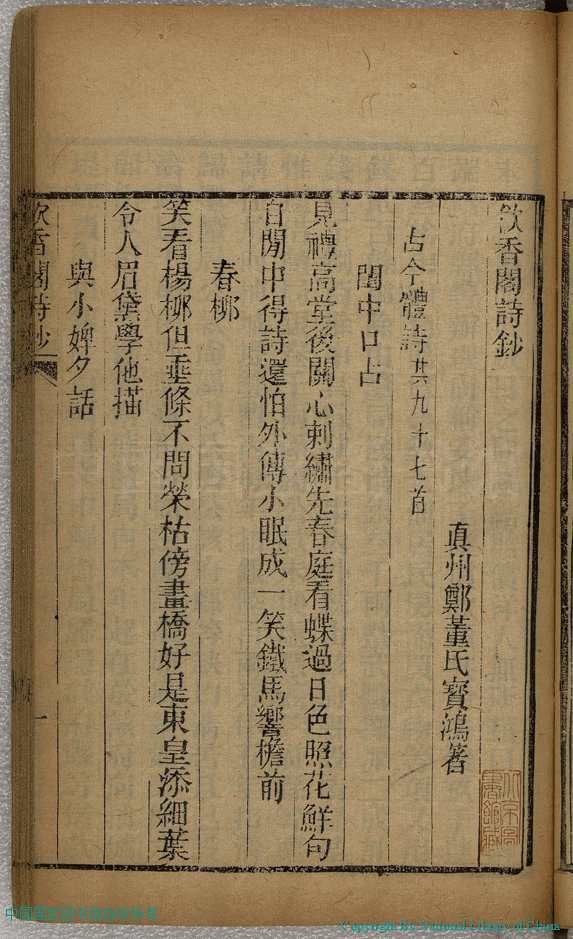 飲香閣詩鈔
真州鄭董氏寶鴻著
古今體詩共九十七首
閨中口占
見禮高堂後關心刺繡先春庭看蝶過日色照花鮮句
自閒中得詩還怕外傳小眠成一笑鐵馬響檐前
春柳
笑看楊柳但垂條不問榮枯傍畫橋好是東皇添細葉
令人眉黛學他描
與小婢夕話
飲香閣詩鈔
一
Copyright By National Library of China